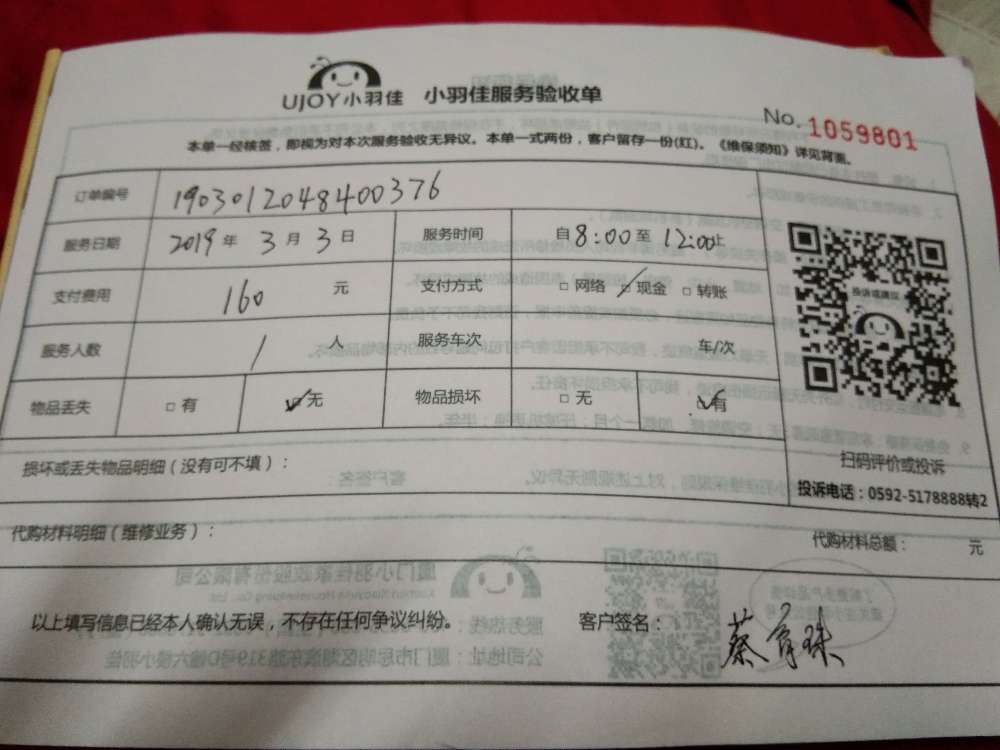 UJOY小羽佳 小羽佳服务验收单
No. 1059801
本单一经核签，即视为对本次服务验收无异议。本单一式两份，客户留存一份(红)。《维保须知》详见背面。
订单编号 1903012048400376
服务日期 2019年3月3日 服务时间 自8:00至12:00止
支付费用 160元 支付方式 □网络 ✓现金 □转账
服务人数 1人 服务车次 车/次
物品丢失 □有 ✓无 物品损坏 □无 ✓有
投诉或建议
扫码评价或投诉
投诉电话：0592-5178888转2
损坏或丢失物品明细（没有可不填）：
代购材料明细（维修业务）： 代购材料总额： 元
以上填写信息已经本人确认无误，不存在任何争议纠纷。 客户签名：蔡育珠